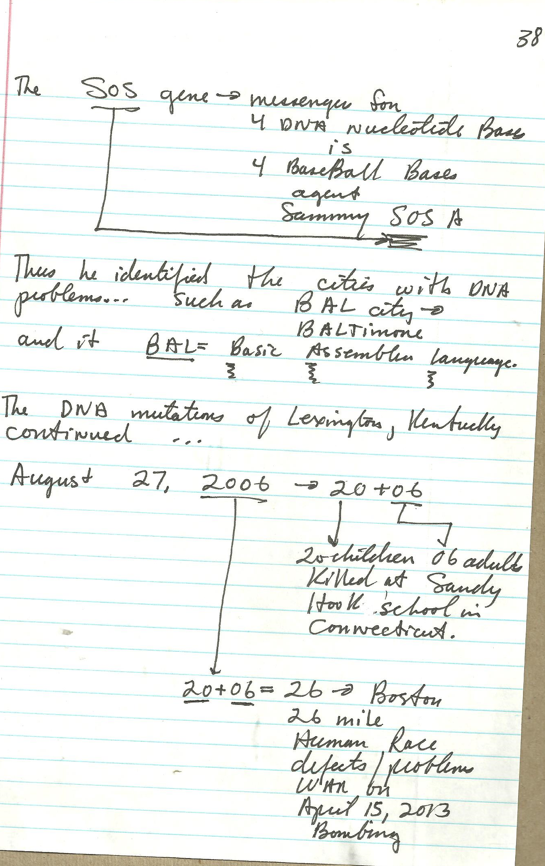 38
The SOS gene → messenger for
4 DNA nucleotide Bases
is
4 BaseBall Bases
agent
Sammy SOS A
Thus he identified the cities with DNA
problems... such as BAL city →
BALTimore
and it BAL = Basic Assembler Language.
The DNA mutations of Lexington, Kentucky
continued ...
August 27, 2006 → 20 + 06
20 children 06 adults
Killed at Sandy
Hook school in
Connecticut.
20 + 06 = 26 → Boston
26 mile
Human Race
defects/problems
WAR on
April 15, 2013
Bombing